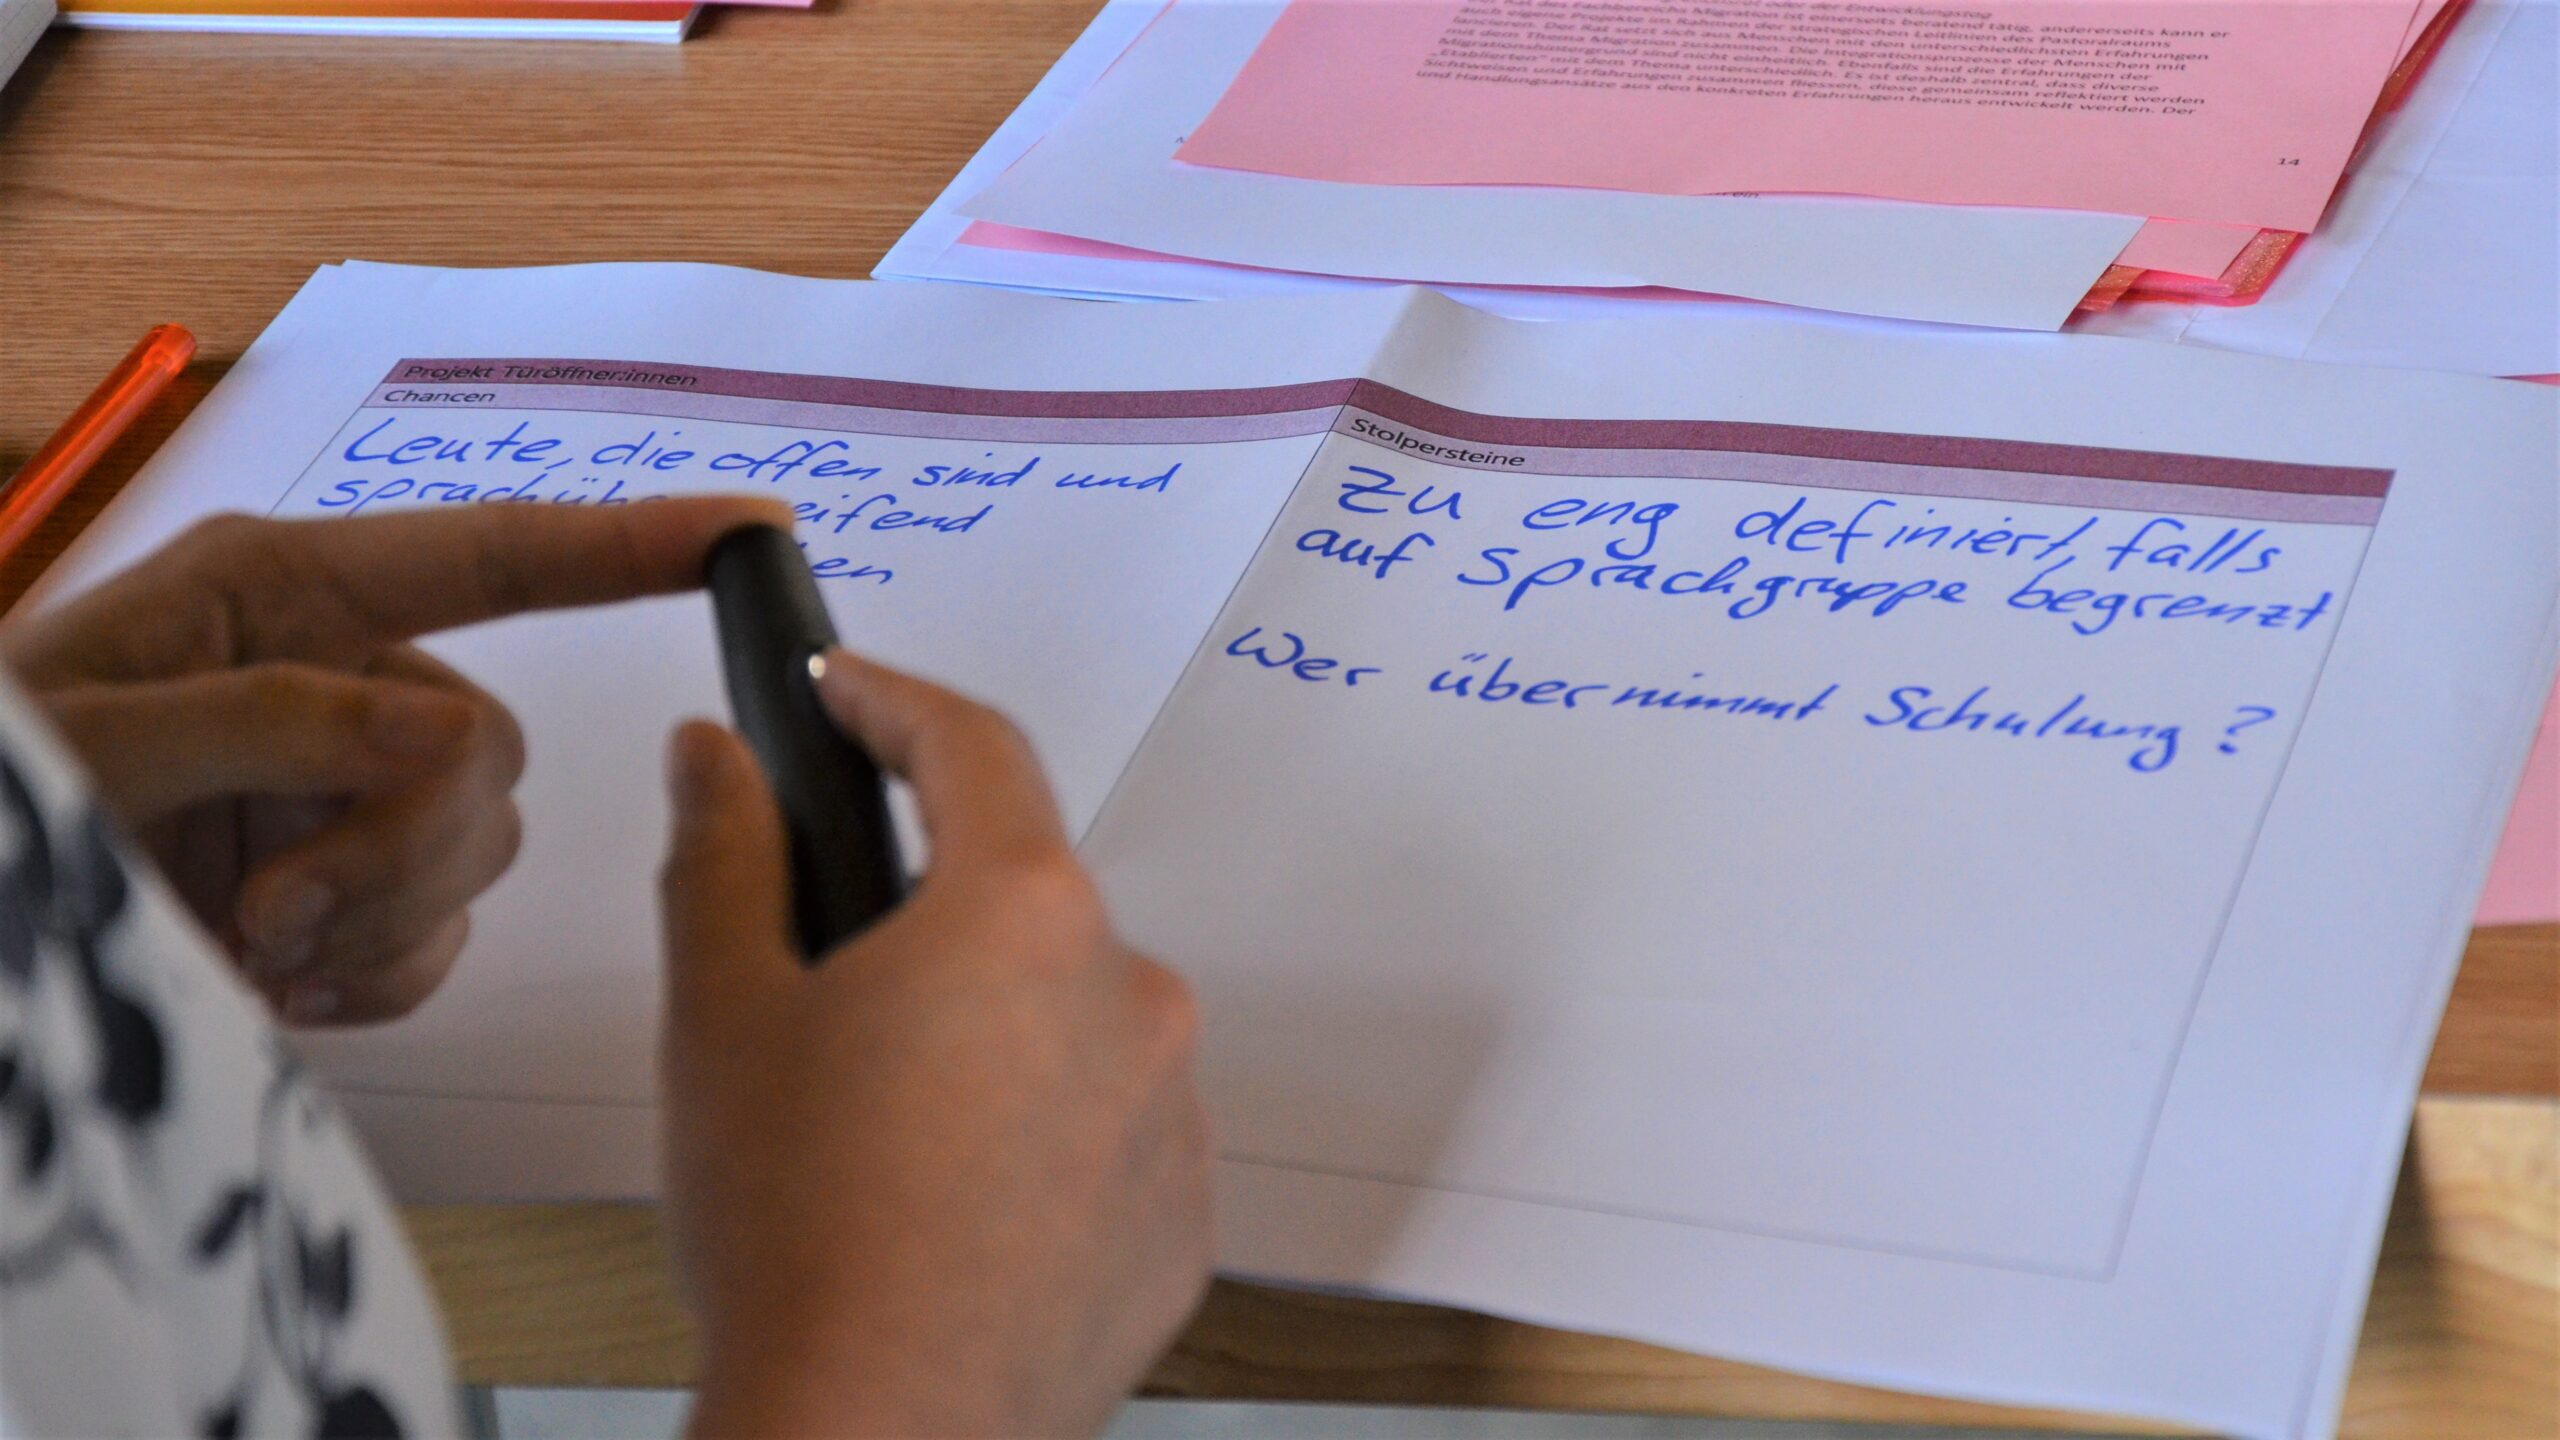 auch eigene Projekte im Rahmen der strategischen Leitlinien des Pastoralraums
lancieren. Der Rat setzt sich aus Menschen mit den unterschiedlichsten Erfahrungen
mit dem Thema Migration zusammen. Die Integrationsprozesse der Menschen mit
Migrationshintergrund sind nicht einheitlich. Ebenfalls sind die Erfahrungen der
„Etablierten“ mit dem Thema unterschiedlich. Es ist deshalb zentral, dass diverse
Sichtweisen und Erfahrungen zusammen fliessen, diese gemeinsam reflektiert werden
und Handlungsansätze aus den konkreten Erfahrungen heraus entwickelt werden. Der
14
Projekt Türöffner:innen
Chancen
Leute, die offen sind und
Stolpersteine
Zu eng definiert, falls
auf Sprachgruppe begrenzt
Wer übernimmt Schulung?